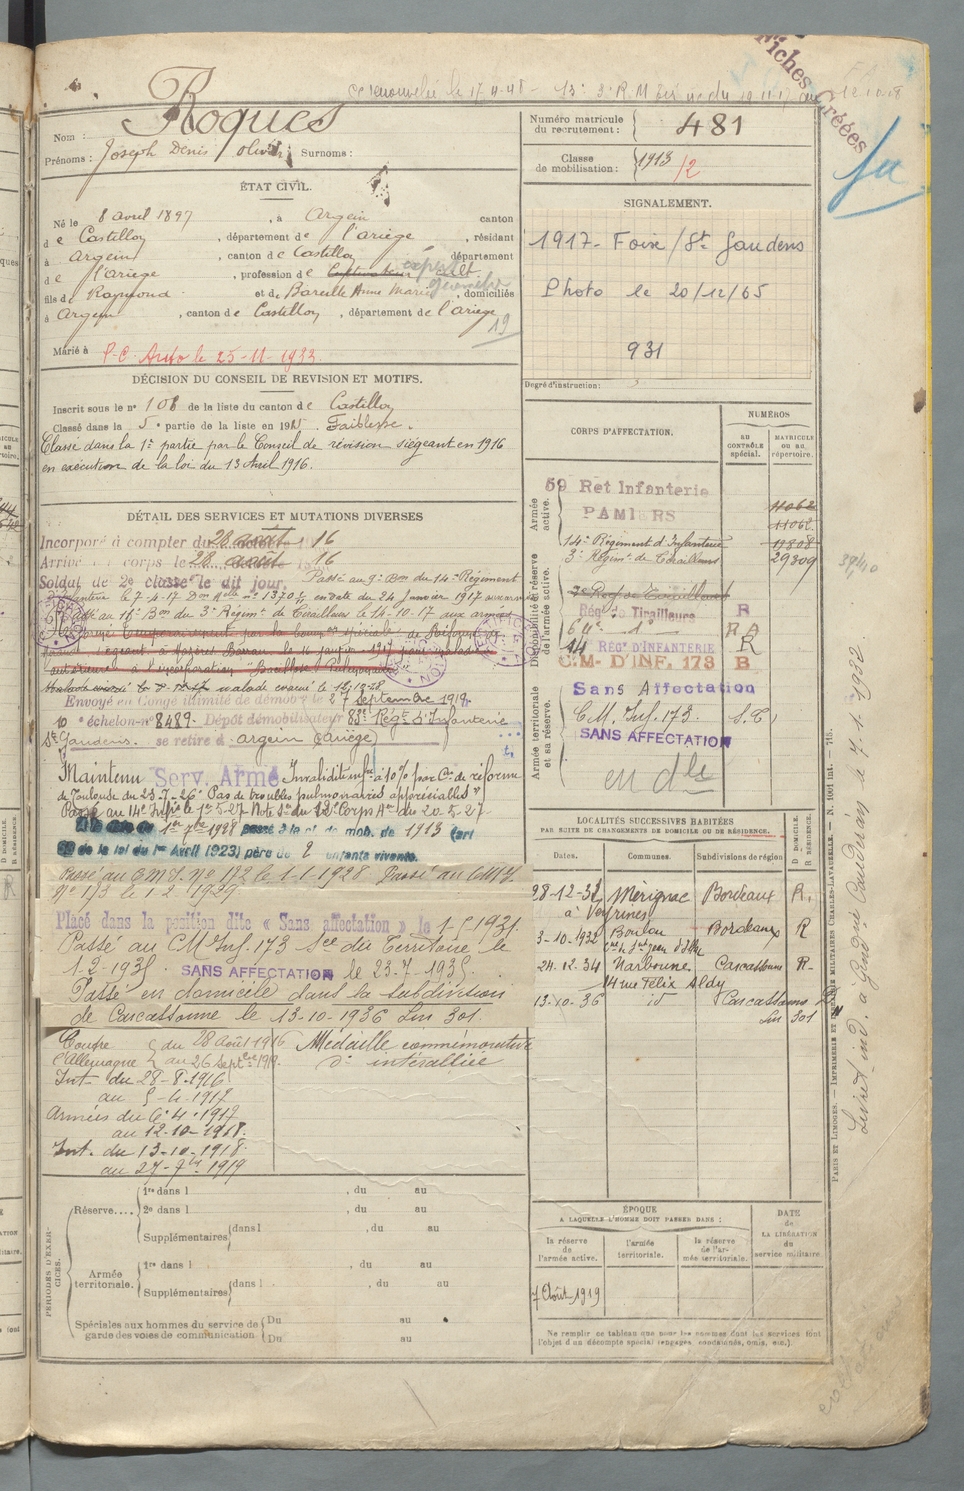 Fiches Créées
Roques
Nom :
Prénoms : Joseph Denis Olivier Surnoms :
Numéro matricule
du recrutement : 481
Classe
de mobilisation : 1913 /2
ÉTAT CIVIL.
Né le 8 avril 1897, à Argein canton
de Castillon, département de l'ariège, résidant
à Argein, canton de Castillon, département
de l'ariège, profession de Cultivateur expert
géomètre
fils de Raymond et de Bareille Anne Marie, domiciliée
à Argein, canton de Castillon, département de l'ariège
19
Marié à P.C. le 25-11-1933.
SIGNALEMENT.
1917 - Foix / St Gaudens
Photo le 20/12/65
931
Degré d'instruction :
DÉCISION DU CONSEIL DE REVISION ET MOTIFS.
Inscrit sous le n° 108 de la liste du canton de Castillon
Classé dans la 5e partie de la liste en 1915. Faiblesse.
Classé dans la 1e partie par le Conseil de révision siégeant en 1916
en exécution de la loi du 13 Avril 1916.
DÉTAIL DES SERVICES ET MUTATIONS DIVERSES
Incorporé à compter du 28 août 1916
Arrivé au corps le 28 août 1916
Soldat de 2e classe le dit jour. Passé au 9e Bon du 14e Régiment
d'Infanterie le 7-4-17 Don Mlle n° 1370 en date du 24 Janvier 1917 aux armées
Passé au 11e Bon du 3e Régimt de Tirailleurs le 14-10-17 aux armées
Réformé temporairement par la Common spéciale de Réforme
malade évacué le 12-10-18
Envoyé en Congé illimité de démobn le 27 Septembre 1919
10e échelon n° 8489 Dépôt démobilisateur 83e Régt d'Infanterie
St Gaudens. se retire à argein (Ariège)
Maintenu Serv. Armé Invalidité infre à 10% par Con de réforme
de Toulouse du 23-7-26 "Pas de troubles pulmonaires appréciables"
Passé au 14e Infie le 1er-5-27 Note du Corps Ar du 20-5-27
1er 7bre 1928 passé à la cl. de mob. de 1913 (art
58 de la loi du 1er Avril 1923) père de 2 enfants vivants.
Passé au CMI N° 172 le 1-1-1928 Passé au CMI
N° 173 le 1-2-1929
Placé dans la position dite « Sans affectation » le 1-5-1931.
Passé au CM Inf. 173 Sce du Territoire le
1-2-1935. SANS AFFECTATION le 23-7-1935.
Passé en domicile dans la subdivision
de Carcassonne le 13-10-1936 Lm 301.
Contre l'Allemagne du 28 Août 1916
au 26 Septbre 1919.
Int. du 28-8-1916
au 5-4-1917
Armées du 6-4-1917
au 12-10-1918.
Int. du 13-10-1918
au 27-7bre 1919
Médaille commémorative
d° interalliée
CORPS D'AFFECTATION.
NUMÉROS
AU CONTRÔLE spécial.
MATRICULE ou au répertoire.
Armée active.
59 Rgt Infanterie
PAMIERS
11062
11062
14e Régiment d'Infanterie 11808
3e Régimt de Tirailleurs 29309
Disponibilité et réserve de l'armée active.
3e Reg. de Tirailleurs R
Régt de Tirailleurs
14 RÉGt D'INFANTERIE R
C.M. D'INF. 173 B
Armée territoriale et sa réserve.
Sans Affectation
C.M. Inf. 173. S.T.
SANS AFFECTATION
en dle
LOCALITÉS SUCCESSIVES HABITÉES
PAR SUITE DE CHANGEMENTS DE DOMICILE OU DE RÉSIDENCE.
D DOMICILE.
R RÉSIDENCE.
Dates. Communes. Subdivisions de région
28-12-31 Mérignac Bordeaux R.
à Veyrines
3-10-1932 Boulou Bordeaux R
24.12.34 Narbonne Carcassonne R.
14 rue Félix Aldy
13-10-36 id Carcassonne
Lm 301
Livret ind. à Gendie Caudéran le 7.1.1932
PARIS ET LIMOGES. — IMPRIMERIE ET LIBRAIRIE MILITAIRES CHARLES-LAVAUZELLE. — N. 1001 int. — 715.
PÉRIODES D'EXERCICES.
Réserve....
1re dans l , du au
2e dans l , du au
Supplémentaires dans l , du au
Armée territoriale.
1re dans l , du au
Supplémentaires dans l , du au
Spéciales aux hommes du service de
garde des voies de communication
Du au
Du au
ÉPOQUE
A LAQUELLE L'HOMME DOIT PASSER DANS :
la réserve de l'armée active.
l'armée territoriale.
la réserve de l'armée territoriale.
DATE de LA LIBÉRATION du service militaire.
7 Août 1919
Ne remplir ce tableau que pour les hommes dont les services font
l'objet d'un décompte spécial (engagés, condamnés, omis, etc.).